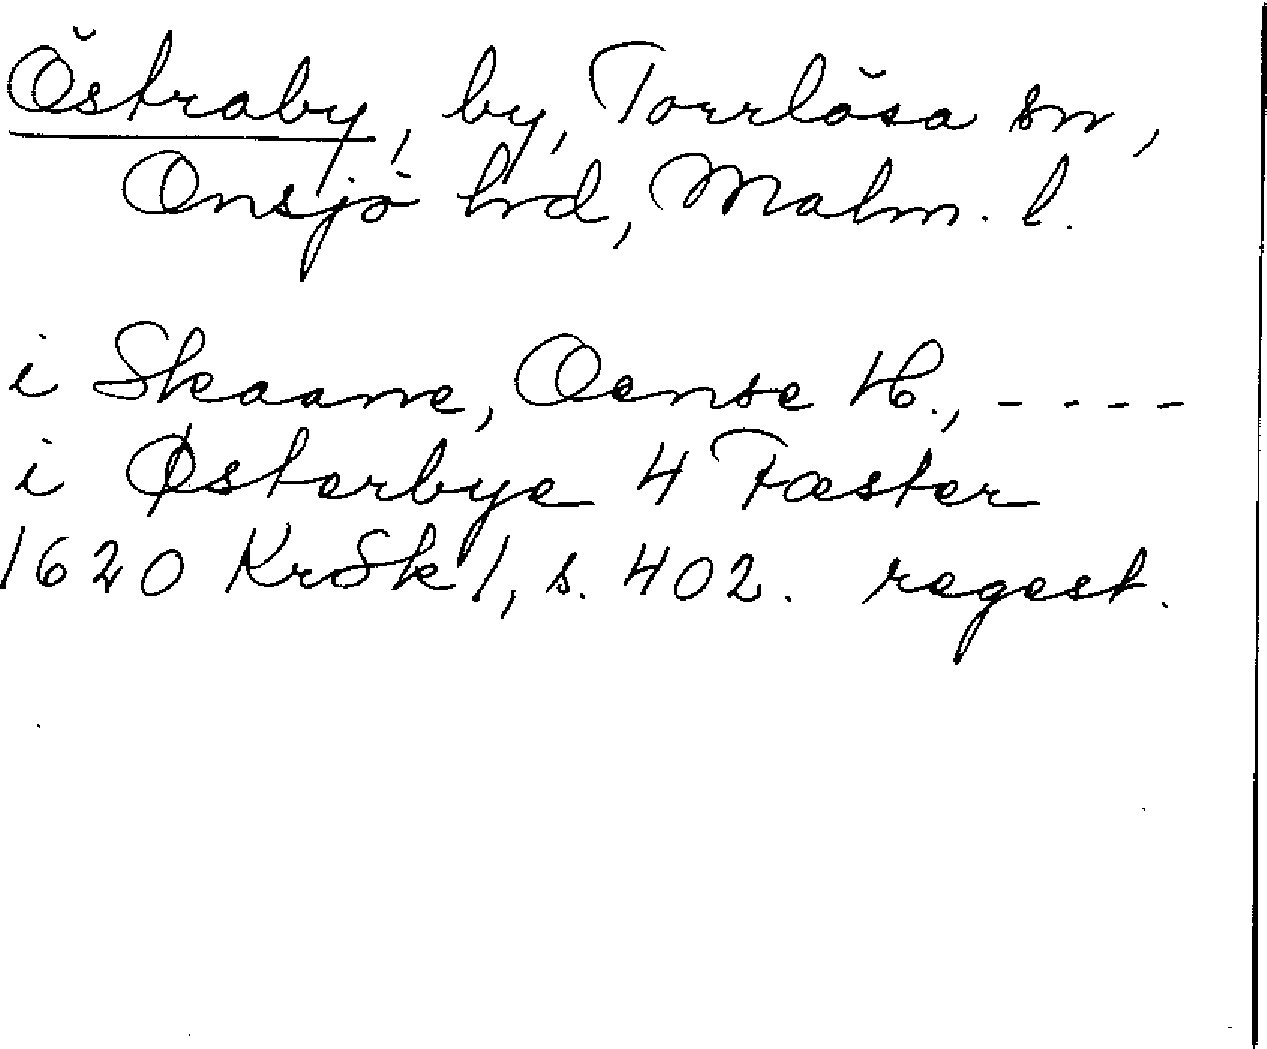 Östraby, by, Torrlösa sn,
Onsjö hrd, Malm. l.
i Skaane, Oense H., - - - -
i Østerbye 4 Fæster
1620 KrSk 1, s. 402. regest.